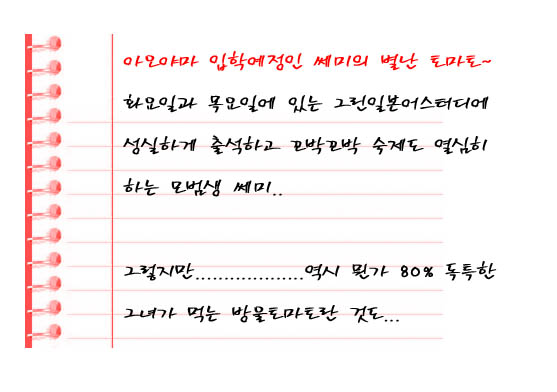 아오야마 입학예정인 쎄미의 별난 토마토~
화요일과 목요일에 있는 그런일본어스터디에
성실하게 출석하고 꼬박꼬박 숙제도 열심히
하는 모범생 쎄미..
그렇지만...................역시 뭔가 80% 독특한
그녀가 먹는 방울토마토란 것도...